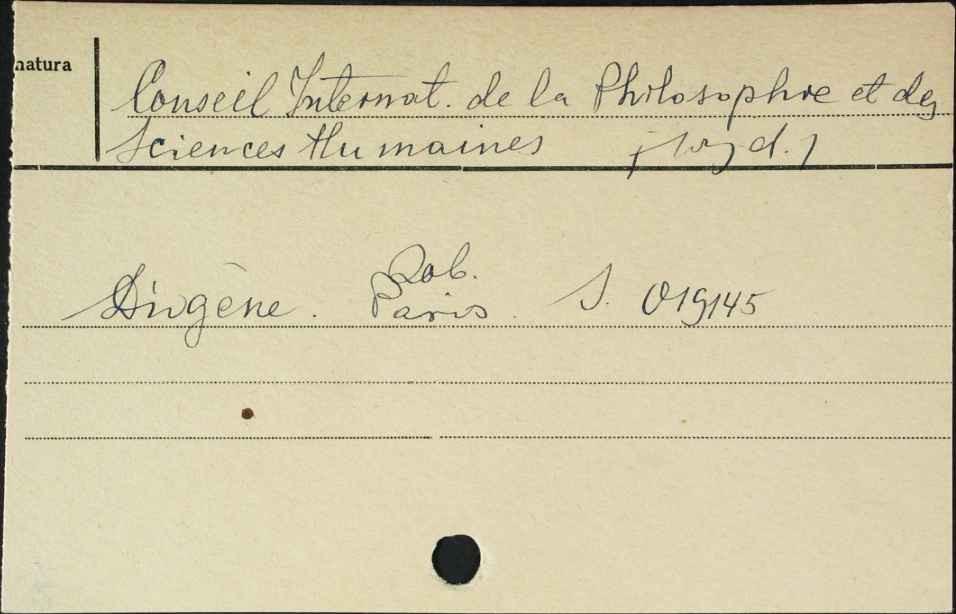 natura
Conseil Internat. de la Philosophie et des
Sciences Humaines [wyd.]
Diogène. Zob.
Paris. S. 019145